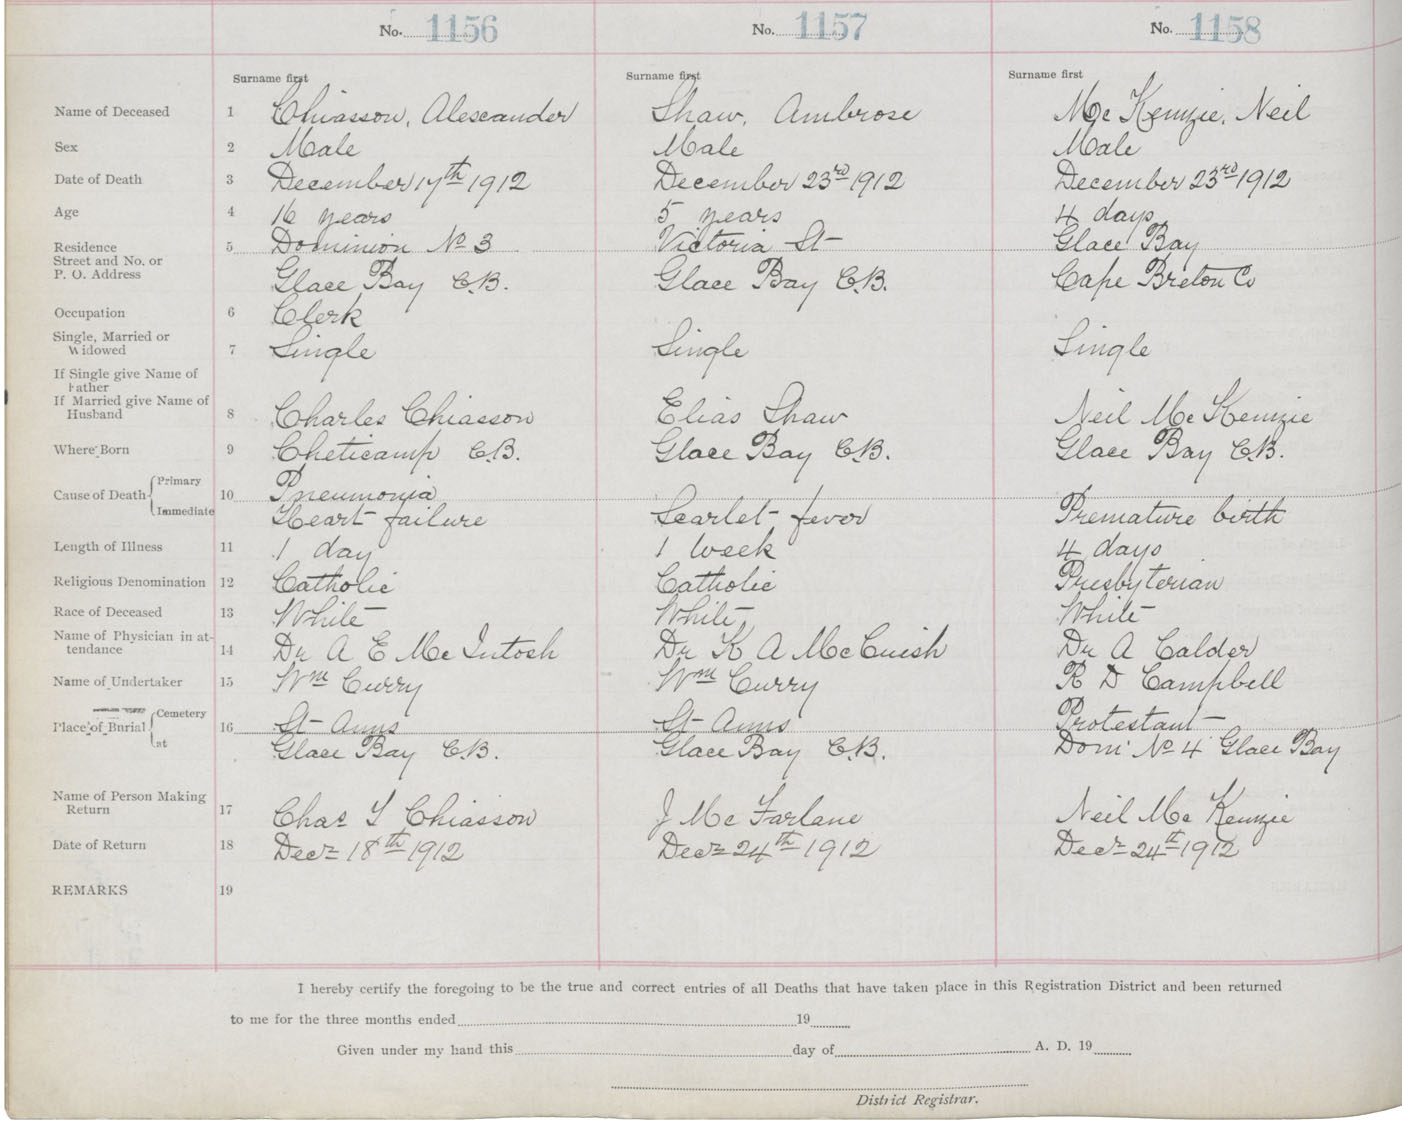 No. 1156 No. 1157 No. 1158
Surname first Surname first Surname first
Name of Deceased 1 Chiasson, Alexander Shaw, Ambrose Mc Kenzie, Neil
Sex 2 Male Male Male
Date of Death 3 December 17th 1912 December 23rd 1912 December 23rd 1912
Age 4 16 years 5 years 4 days
Residence 5 Dominion No 3 Victoria St Glace Bay
Street and No. or
P. O. Address Glace Bay C.B. Glace Bay C.B. Cape Breton Co
Occupation 6 Clerk
Single, Married or
Widowed 7 Single Single Single
If Single give Name of
Father
If Married give Name of
Husband 8 Charles Chiasson Elias Shaw Neil Mc Kenzie
Where Born 9 Cheticamp C.B. Glace Bay C.B. Glace Bay C.B.
Cause of Death Primary 10 Pneumonia
Immediate Heart failure Scarlet fever Premature birth
Length of Illness 11 1 day 1 week 4 days
Religious Denomination 12 Catholic Catholic Presbyterian
Race of Deceased 13 White White White
Name of Physician in at-
tendance 14 Dr A E Mc Intosh Dr K A Mc Cuish Dr A Calder
Name of Undertaker 15 Wm Curry Wm Curry R D Campbell
Place of Burial Cemetery 16 St Anns St Anns Protestant
at Glace Bay C.B. Glace Bay C.B. Dom No 4 Glace Bay
Name of Person Making
Return 17 Chas I Chiasson J Mc Farlane Neil Mc Kenzie
Date of Return 18 Decr 18th 1912 Decr 24th 1912 Decr 24th 1912
REMARKS 19
I hereby certify the foregoing to be the true and correct entries of all Deaths that have taken place in this Registration District and been returned
to me for the three months ended 19
Given under my hand this day of A. D. 19
District Registrar.